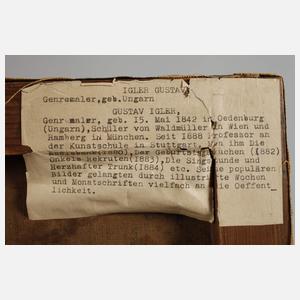 IGLER GUSTAV
Genremaler, geb. Ungarn
GUSTAV IGLER,
Genremaler, geb. 15. Mai 1842 in Oedenburg
(Ungarn), Schüler von Waldmüller in Wien und
Ramberg in München. Seit 1888 Professor an
der Kunstschule in Stuttgart. Von ihm Die
(1880), Der Geburtstagskuchen (1882)
Onkels Rekruten (1883), Die Singstunde und
Herzhafter Trunk (1884) etc. Seine populären
Bilder gelangten durch illustrierte Wochen
und Monatschriften vielfach an die Oeffent_
lichkeit.